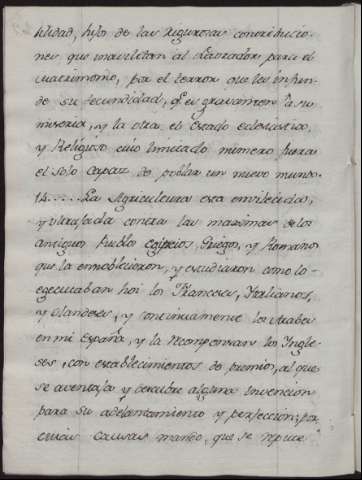 hilidad, hijo de las rigurosas contribucio-
nes que inavilitan al Labrador para el
matrimonio, por el terror que les infun-
de su fecundidad, qe es gravamen a su
miseria, y la otra el estado eclesiastico,
y Religioso cuio limitado numero fuera
el solo capaz de poblar un nuevo mundo.
14..... La Agricultura esta envilecida,
y ultrajada contra las maximas de los
antiguos Pueblos egipcios, Griegos, y Romanos
que la ennoblecieron, y estudiaron como lo
egecutaban hoi los Franceses, Italianos,
y Olandeses, y continuamente los Arabes
en mi España, y la recompensan los Ingle-
ses, con establecimientos de premio, al que
se aventaja y descubre alguna invencion
para su adelantamiento y perfeccion; por
cuias causas mando, que se repute